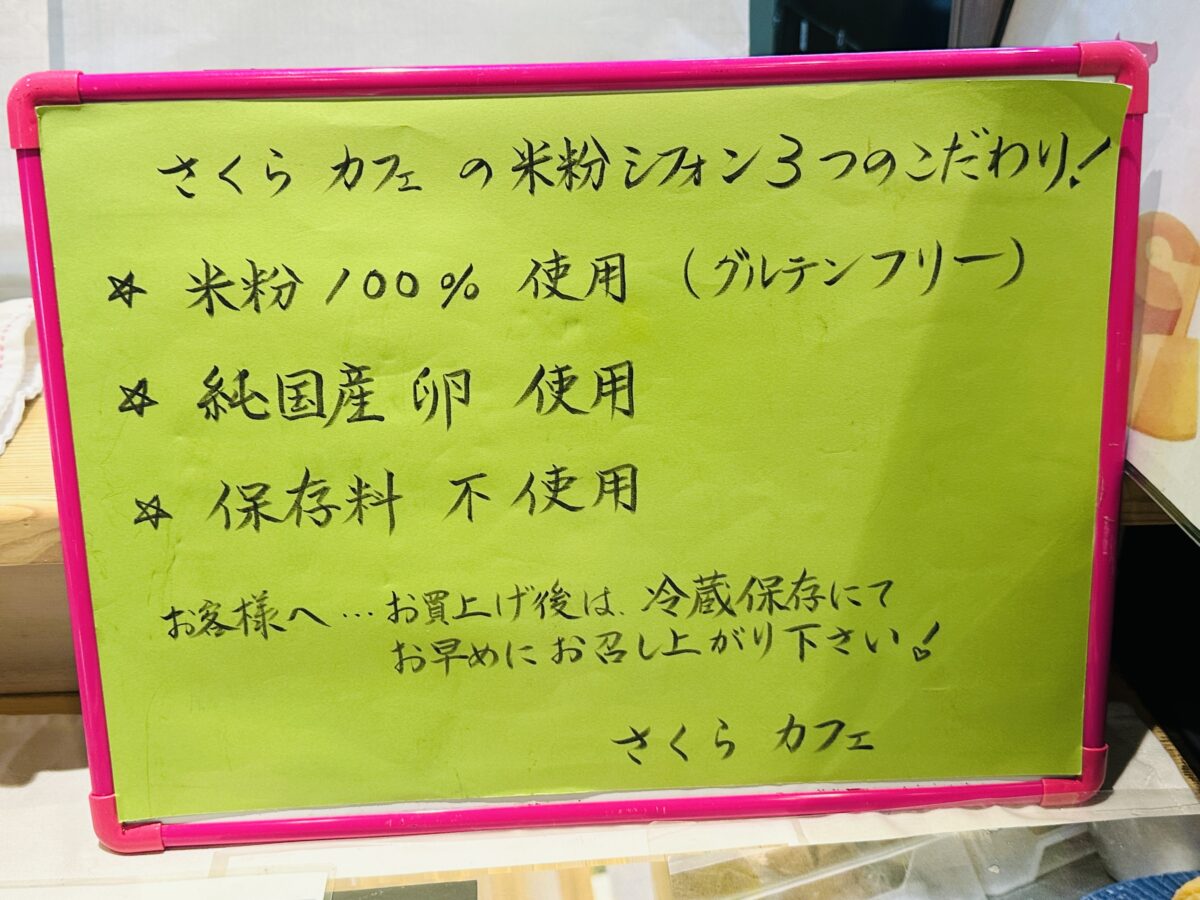 さくら カフェ の 米粉 シフォン 3つのこだわり!
☆ 米粉 100% 使用 (グルテンフリー)
☆ 純国産 卵 使用
☆ 保存料 不使用
お客様へ…お買上げ後は、冷蔵保存にて
お早めにお召し上がり下さい!
さくら カフェ